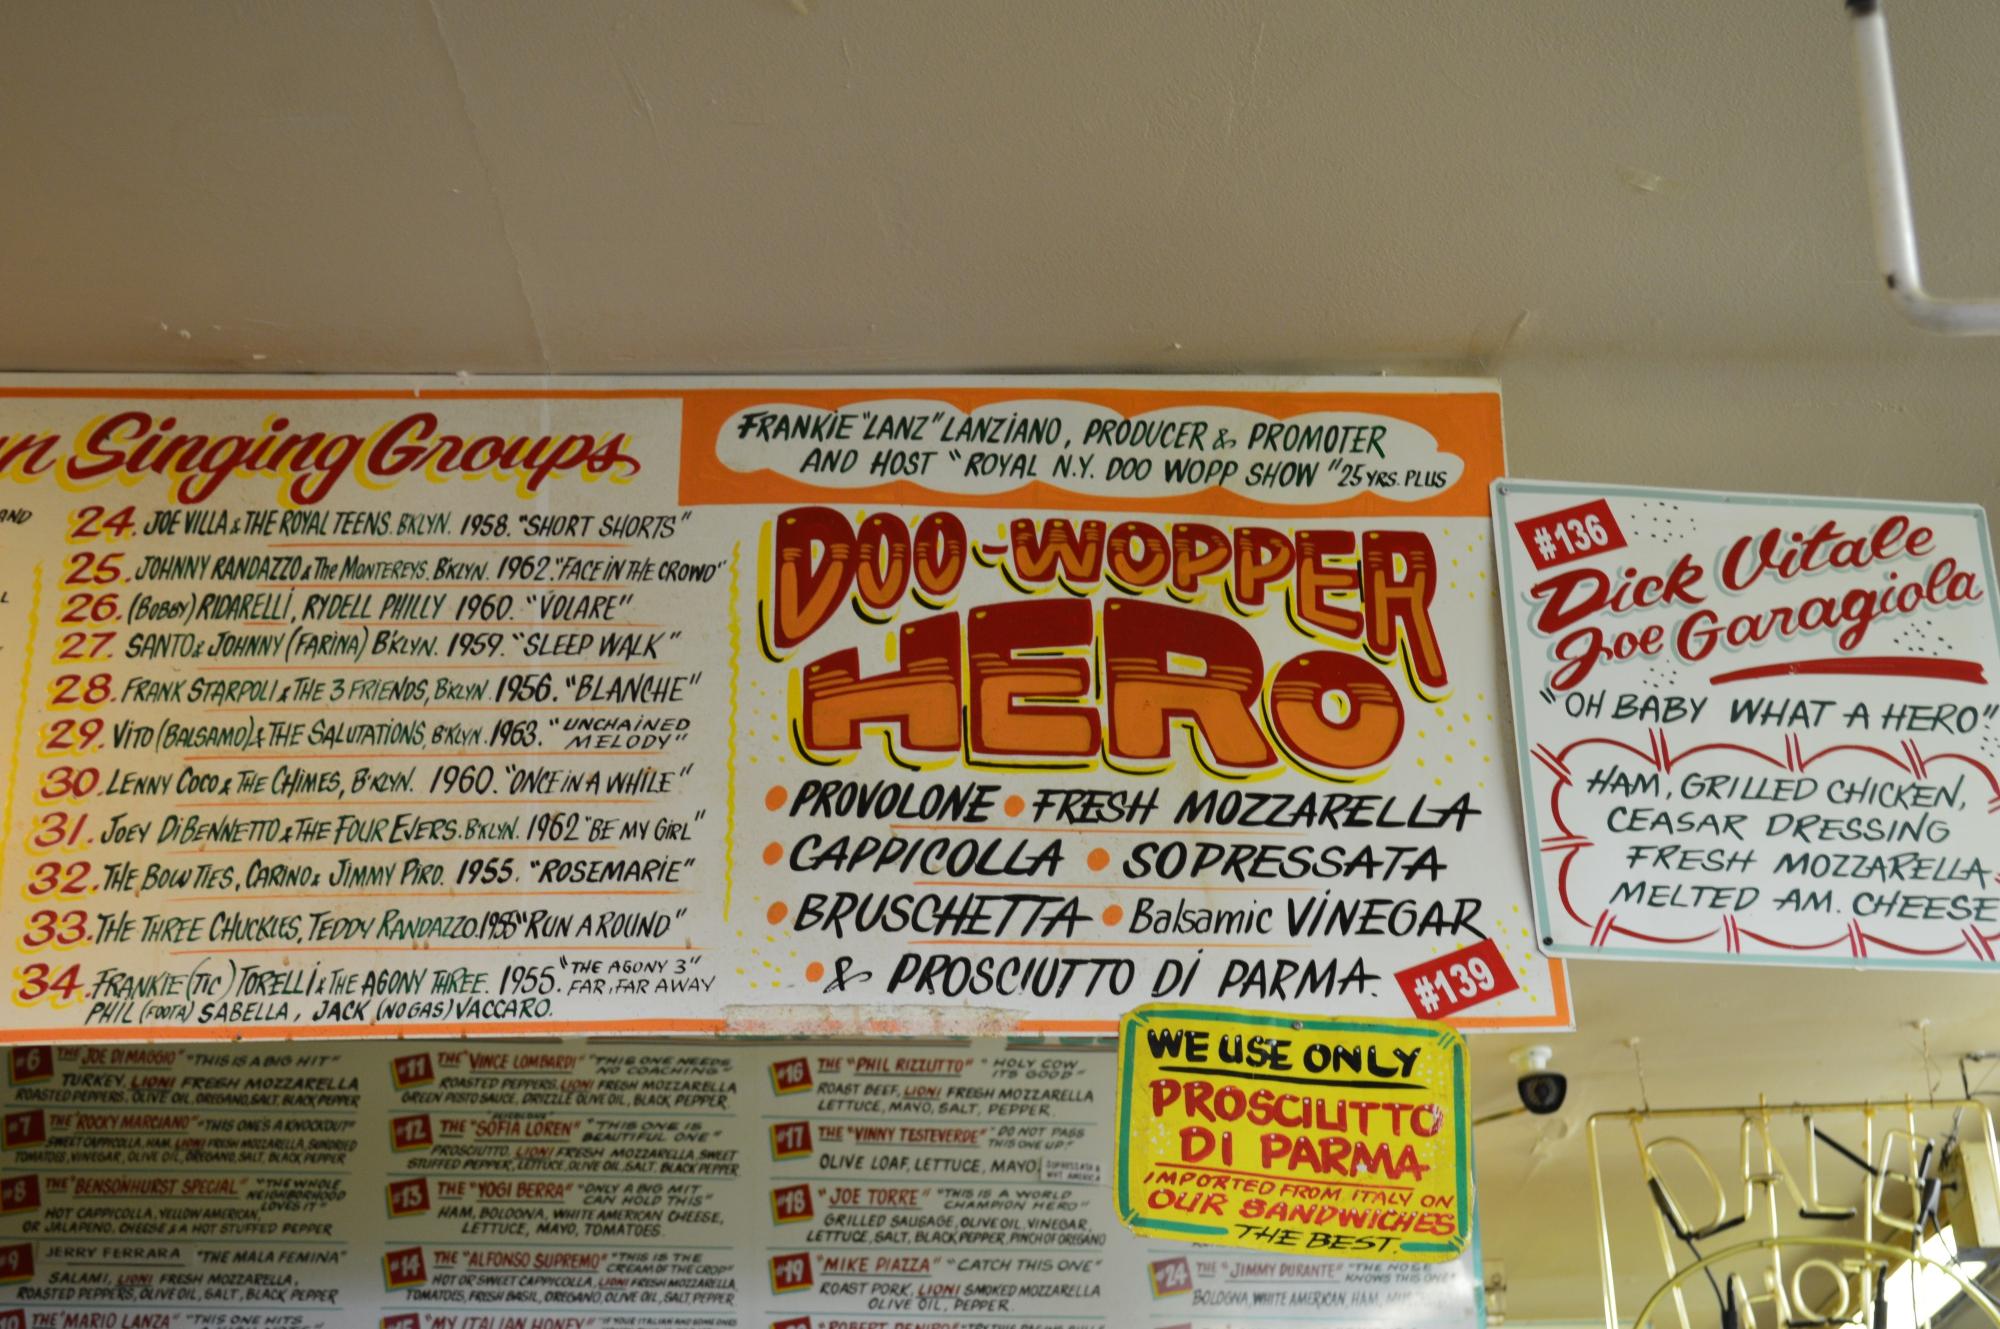 n Singing Groups
AND
L
24. JOE VILLA & THE ROYAL TEENS. BKLYN. 1958. "SHORT SHORTS"
25. JOHNNY RANDAZZO & The MONTEREYS. B'KLYN. 1962. "FACE IN THE CROWD"
26. (BOBBY) RIDARELLI, RYDELL PHILLY 1960. "VOLARE"
27. SANTO & JOHNNY (FARINA) B'KLYN. 1959. "SLEEP WALK"
28. FRANK STARPOLI & THE 3 FRIENDS, B'KLYN. 1956. "BLANCHE"
29. VITO (BALSAMO) & THE SALUTATIONS, B'KLYN. 1963. "UNCHAINED
MELODY"
30. LENNY COCO & THE CHIMES, B'KLYN. 1960. "ONCE IN A WHILE"
31. JOEY DIBENNETTO & THE FOUR EJERS. B'KLYN. 1962 "BE MY GIRL"
32. THE BOW TIES, CARINO & JIMMY PIRO. 1955. "ROSEMARIE"
33. THE THREE CHUCKLES, TEDDY RANDAZZO. "RUN AROUND"
34. FRANKIE (TIC) TORELLI & THE AGONY THREE. 1955. "THE AGONY 3"
FAR, FAR AWAY
PHIL (FOOTA) SABELLA, JACK (NO GAS) VACCARO.
FRANKIE "LANZ" LANZIANO, PRODUCER & PROMOTER
AND HOST "ROYAL N.Y. DOO WOPP SHOW" 25 YRS. PLUS
DOO-WOPPER
HERO
• PROVOLONE • FRESH MOZZARELLA
• CAPPICOLLA • SOPRESSATA
• BRUSCHETTA • Balsamic VINEGAR
• & PROSCIUTTO DI PARMA.
#139
#136
Dick Vitale
Joe Garagiola
"OH BABY WHAT A HERO"
HAM, GRILLED CHICKEN,
CEASAR DRESSING
FRESH MOZZARELLA
MELTED AM. CHEESE
WE USE ONLY
PROSCIUTTO
DI PARMA
IMPORTED FROM ITALY ON
OUR SANDWICHES
THE BEST.
#6 THE "JOE DIMAGGIO" "THIS IS A BIG HIT"
TURKEY, LIONI FRESH MOZZARELLA
ROASTED PEPPERS, OLIVE OIL, OREGANO, SALT, BLACK PEPPER
#7 THE "ROCKY MARCIANO" "THIS ONE'S A KNOCKOUT"
SWEET CAPPICOLLA, HAM, LIONI FRESH MOZZARELLA, SUNDRIED
TOMATOES, VINEGAR, OLIVE OIL, OREGANO, SALT, BLACK PEPPER
#8 THE "BENSONHURST SPECIAL" "THE WHOLE
NEIGHBORHOOD
LOVES IT"
HOT CAPPICOLLA, YELLOW AMERICAN,
OR JALAPENO, CHEESE & A HOT STUFFED PEPPER
#9 JERRY FERRARA "THE MALA FEMINA"
SALAMI, LIONI FRESH MOZZARELLA,
ROASTED PEPPERS, OLIVE OIL, SALT, BLACK PEPPER
THE "MARIO LANZA" "THIS ONE HITS
#11 THE "VINCE LOMBARDI" "THIS ONE NEEDS
NO COACHING"
ROASTED PEPPERS, LIONI FRESH MOZZARELLA
GREEN PESTO SAUCE, DRIZZLE OLIVE OIL, BLACK PEPPER
#12 THE "SOFIA LOREN" "THIS ONE IS
BEAUTIFUL ONE"
PROSCIUTTO, LIONI FRESH MOZZARELLA, SWEET
STUFFED PEPPER, LETTUCE, OLIVE OIL, SALT, BLACK PEPPER
#13 THE "YOGI BERRA" "ONLY A BIG MIT
CAN HOLD THIS"
HAM, BOLOGNA, WHITE AMERICAN CHEESE,
LETTUCE, MAYO, TOMATOES.
#14 THE "ALFONSO SUPREMO" "THIS IS THE
CREAM OF THE CROP"
HOT OR SWEET CAPPICOLLA, LIONI FRESH MOZZARELLA,
TOMATOES, FRESH BASIL, OREGANO, OLIVE OIL, SALT, PEPPER
"MY ITALIAN HONEY"
#16 THE "PHIL RIZZUTTO" "HOLY COW
IT'S GOOD"
ROAST BEEF, LIONI FRESH MOZZARELLA
LETTUCE, MAYO, SALT, PEPPER.
#17 THE "VINNY TESTEVERDE" "DO NOT PASS
THIS ONE UP"
OLIVE LOAF, LETTUCE, MAYO,
#18 "JOE TORRE" "THIS IS A WORLD
CHAMPION HERO"
GRILLED SAUSAGE, OLIVE OIL, VINEGAR,
LETTUCE, SALT, BLACK PEPPER, PINCH OF OREGANO
#19 "MIKE PIAZZA" "CATCH THIS ONE"
ROAST PORK, LIONI SMOKED MOZZARELLA
OLIVE OIL, PEPPER.
"ROBERT DENIRO"
#24 THE "JIMMY DURANTE" "THE NOSE
KNOWS THIS ONE"
BOLOGNA, WHITE AMERICAN, HAM,